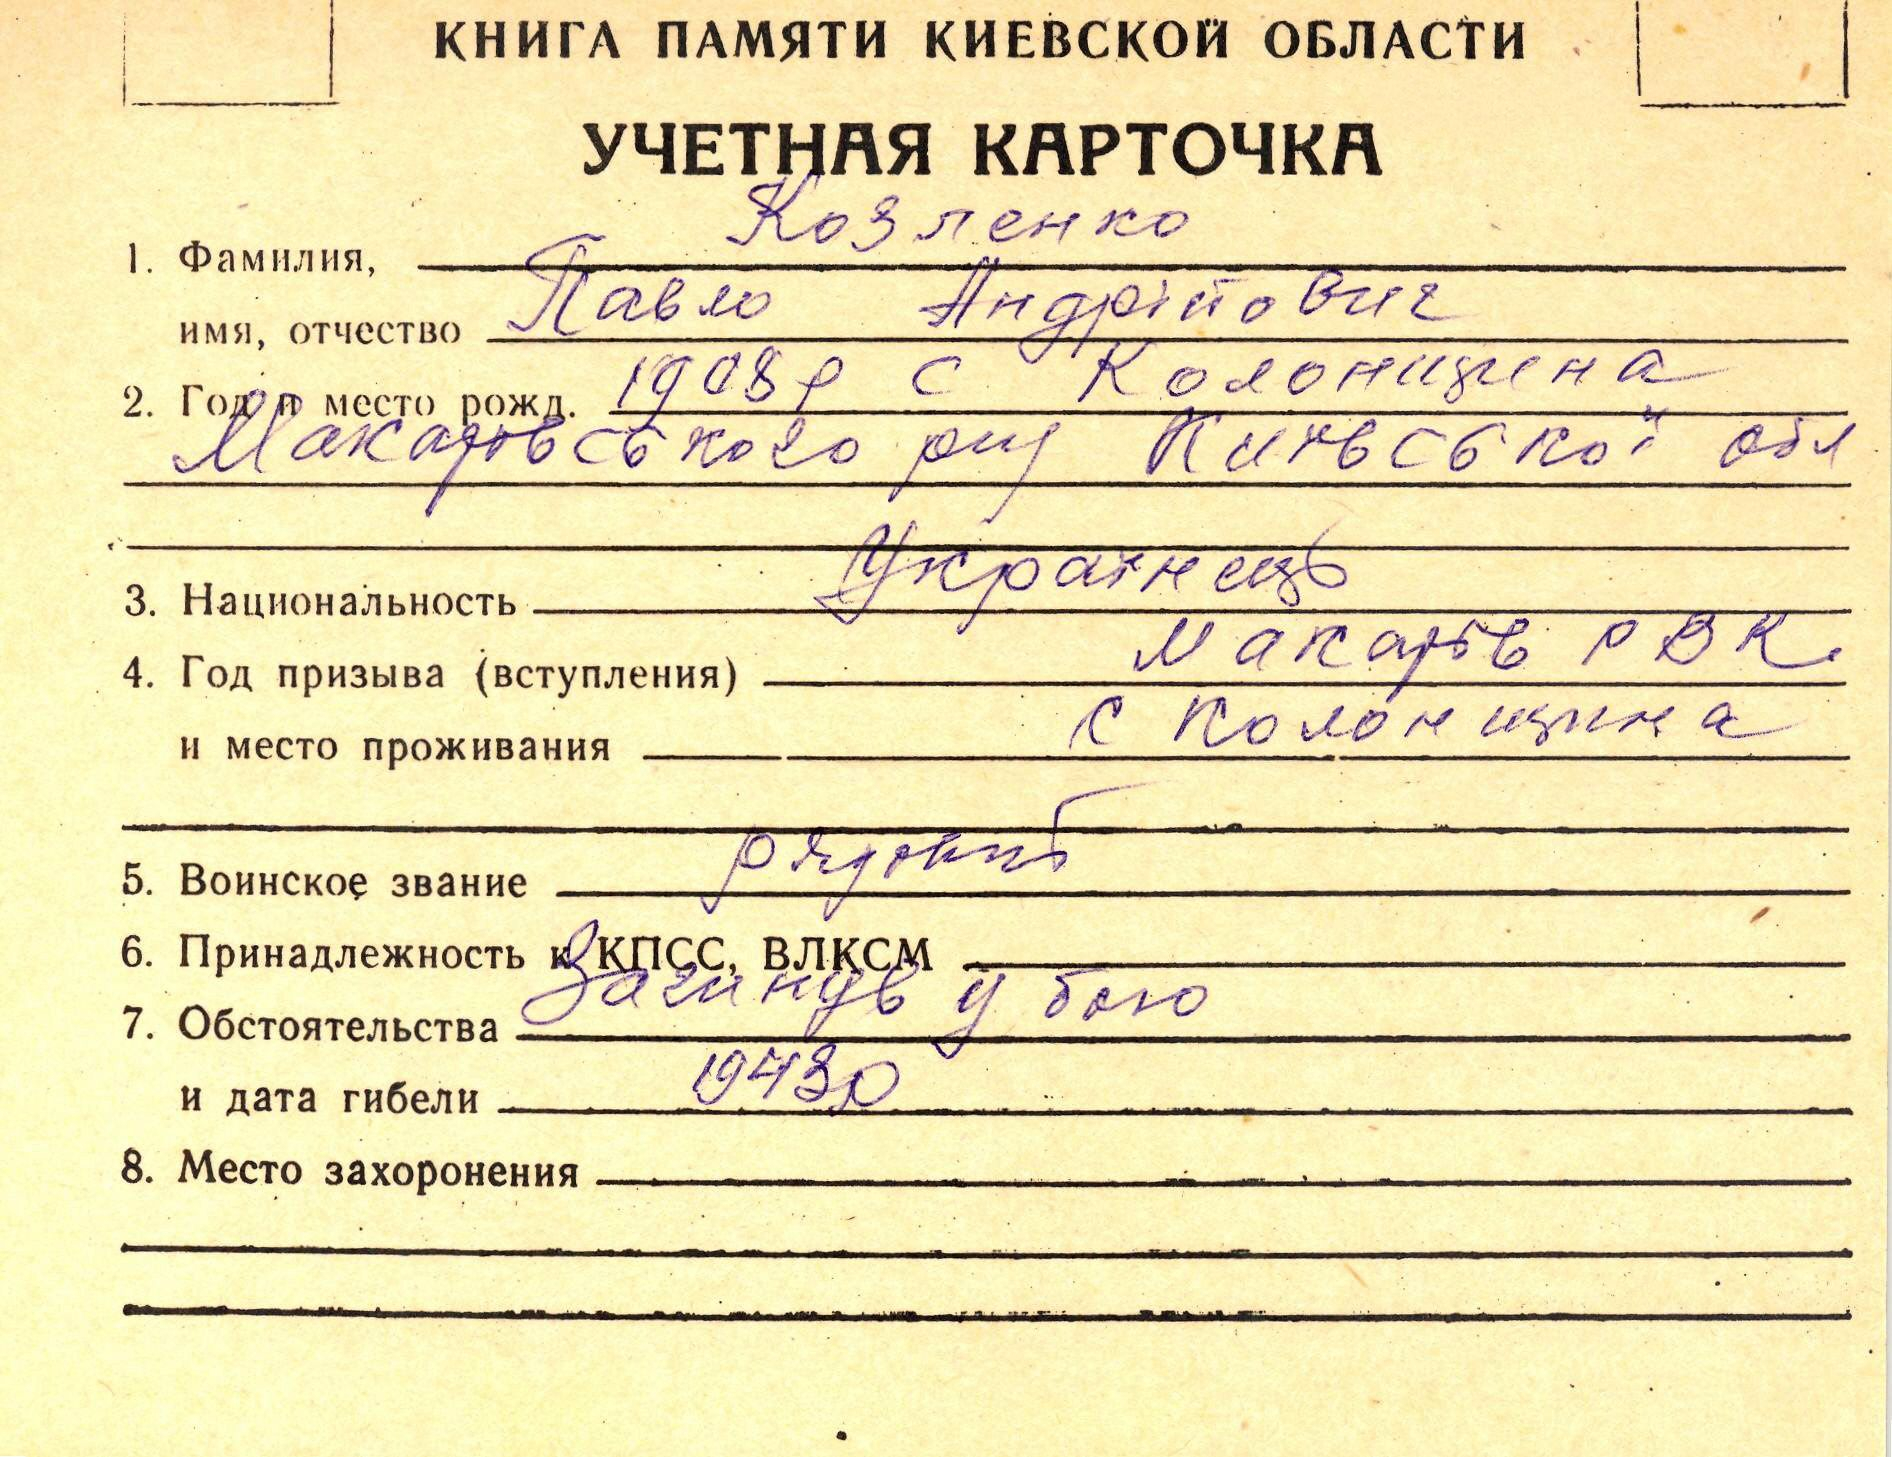 КНИГА ПАМЯТИ КИЕВСКОЙ ОБЛАСТИ
УЧЕТНАЯ КАРТОЧКА
Козленко
1. Фамилия,
Павло Андрійович
имя, отчество
1908р с Колонщина
2. Год и место рожд.
Макарівського р-ну Київської обл
Українець
3. Национальность
Макарів РВК
4. Год призыва (вступления)
с Колонщина
и место проживания
рядовий
5. Воинское звание
6. Принадлежность к КПСС, ВЛКСМ
Загинув у бою
7. Обстоятельства
1943р
и дата гибели
8. Место захоронения